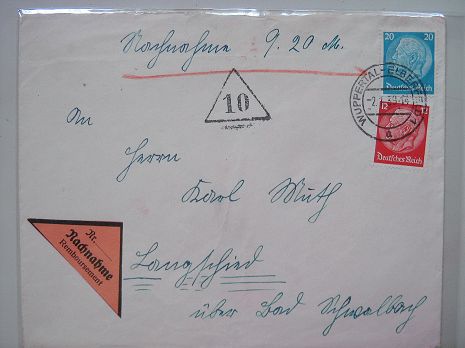 Nachnahme 9.20 M.
20 20
Deutsches Reich
WUPPERTAL-ELBERFELD
a
12 12
Deutsches Reich
10
An
Herrn
Karl Muth
Langschied
über Bad Schwalbach
Nr.
Nachnahme
Remboursement